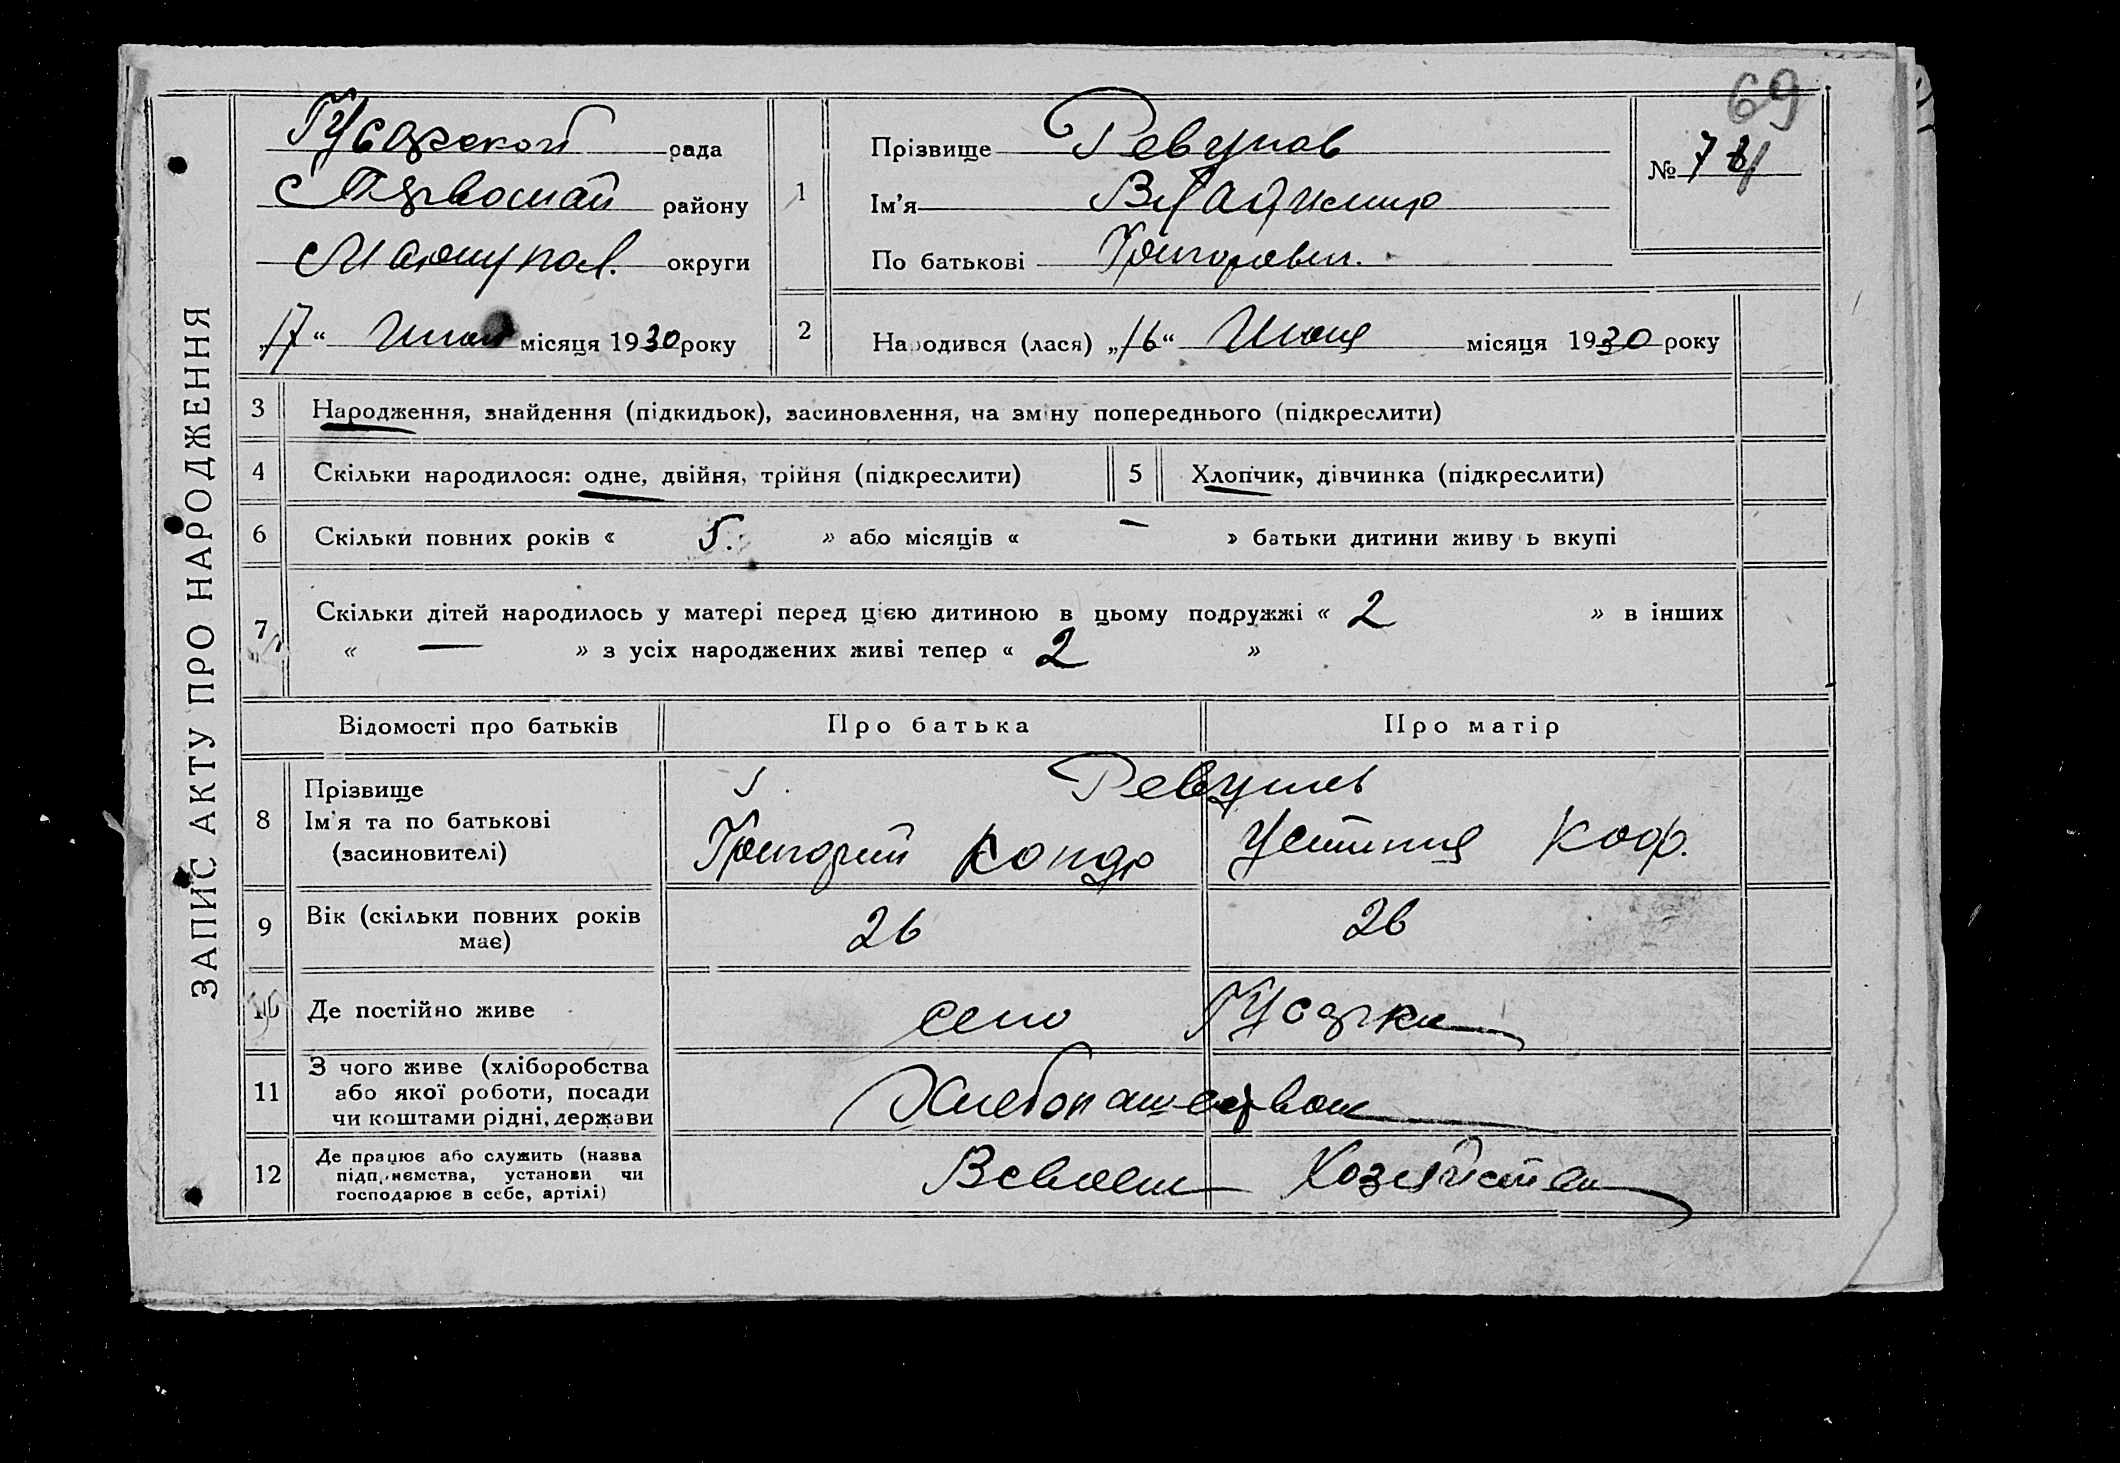 69
ЗАПИС АКТУ ПРО НАРОДЖЕННЯ
Гусарской рада
Первомай району
Мариупол. округи
„17“ Июня місяця 1930 року
1
Прізвище Ревунов
Ім'я Владимир
По батькові Григоревич.
№ 78
2 Народився (лася) „16“ Июня місяця 1930 року
3 Народження, знайдення (підкидьок), засиновлення, на зміну попереднього (підкреслити)
4 Скільки народилося: одне, двійня, трійня (підкреслити)
5 Хлопчик, дівчинка (підкреслити)
6 Скільки повних років « 5. » або місяців « — » батьки дитини живу ь вкупі
7 Скільки дітей народилось у матері перед цією дитиною в цьому подружжі « 2 » в інших
« — » з усіх народжених живі тепер « 2 »
Відомості про батьків Про батька Про матір
8 Прізвище
Ім'я та по батькові
(засиновителі)
Ревунов
Григорий Кондр Устиния
9 Вік (скільки повних років
має)
26 26
10 Де постійно живе село Гусарка
11 З чого живе (хліборобства
або якої роботи, посади
чи коштами рідні, держави
Хлебопашеством
12 Де працює або служить (назва
підприємства, установи чи
господарює в себе, артілі)
В своем Хозяйстве